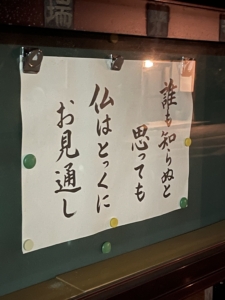 誰も知らぬと
思っても
仏はとっくに
お見通し